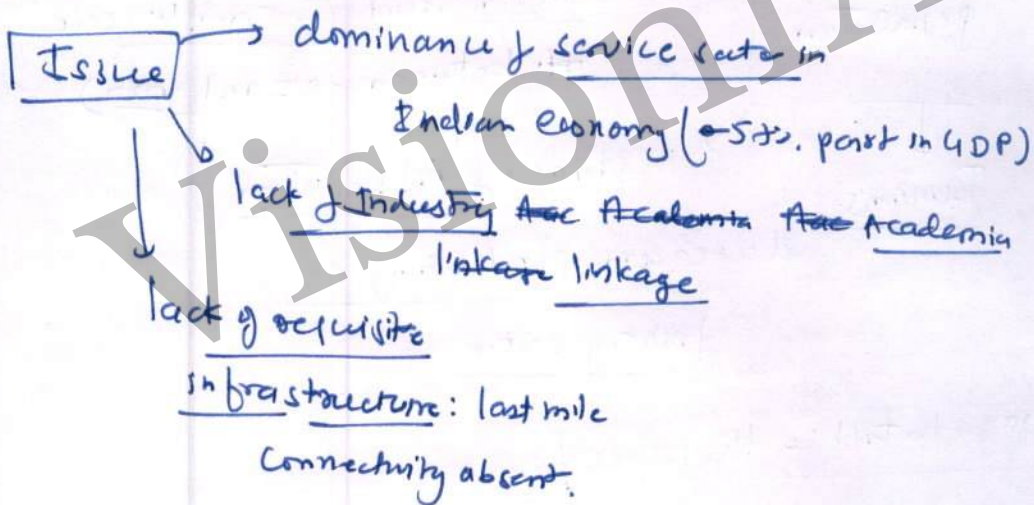 Issue → dominance of service sector in
Indian economy ( part in GDP)
lack of Industry Academia
linkage
lack of requisite
infrastructure: last mile
connectivity absent.
Vision